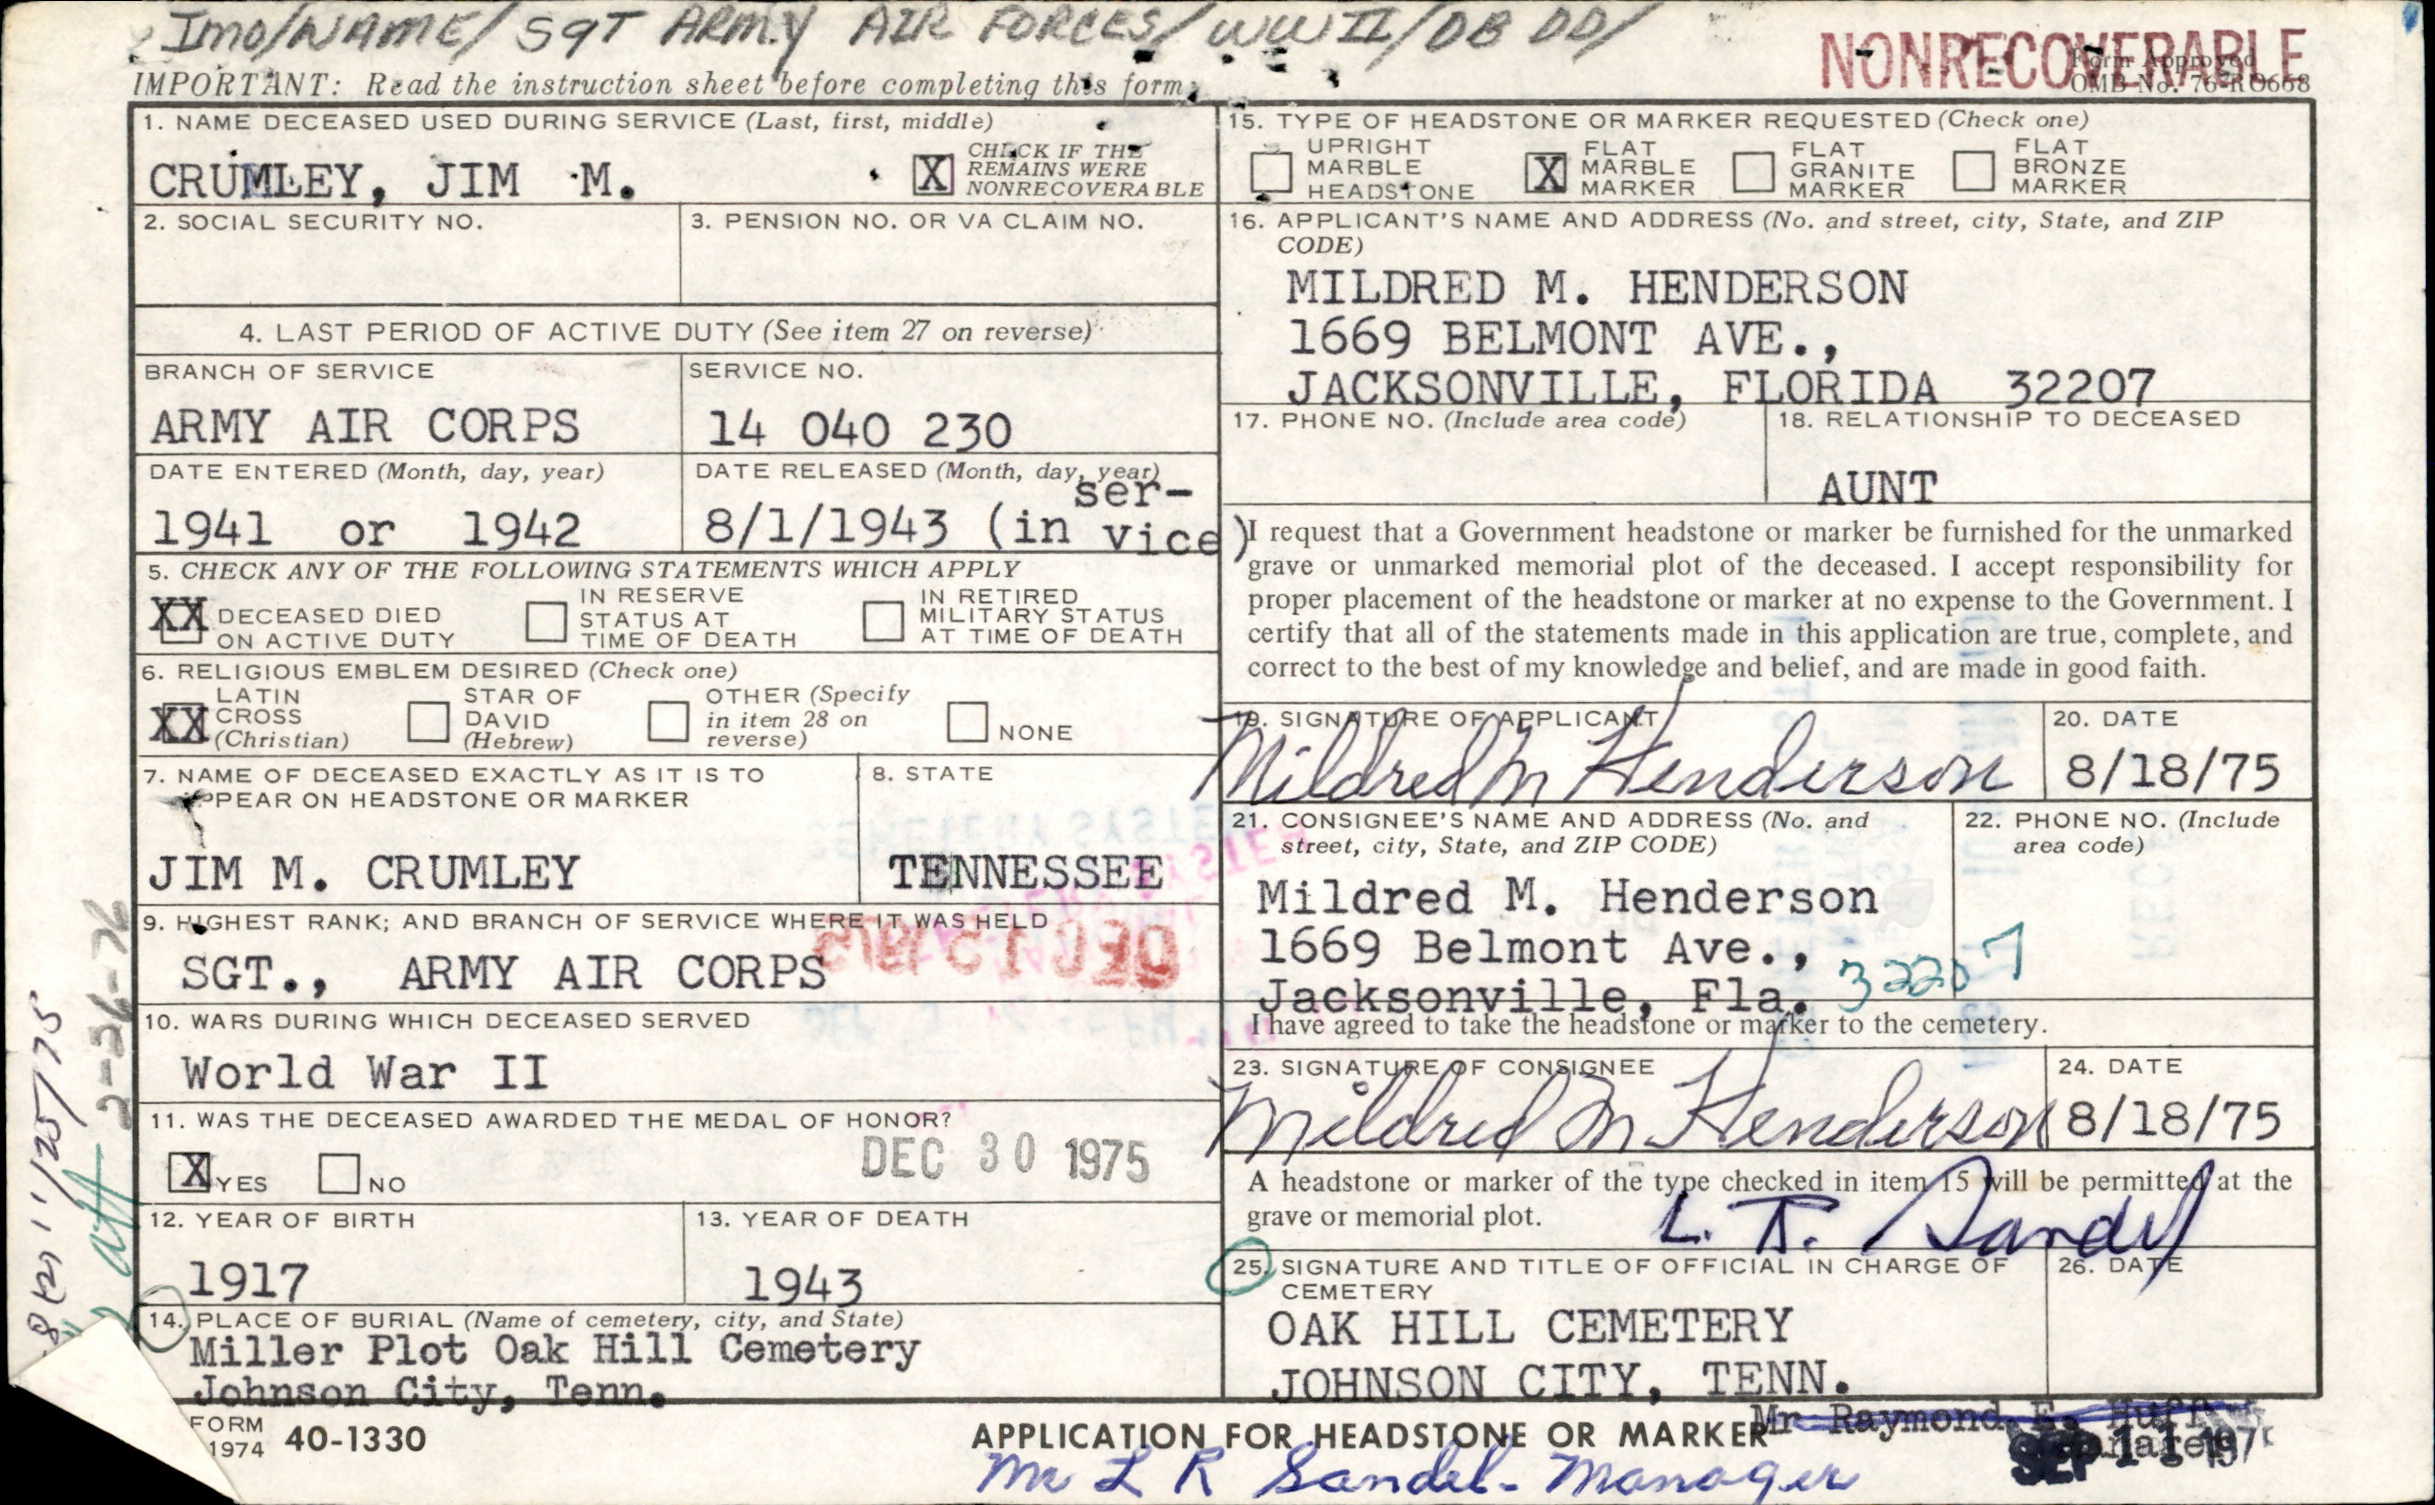 IMO/NAME/ SGT ARMY AIR FORCES/ WWII/DB DD/
NONRECOVERABLE
Form Approved
OMB No. 76-R0668
IMPORTANT: Read the instruction sheet before completing this form.
1. NAME DECEASED USED DURING SERVICE (Last, first, middle)
CRUMLEY, JIM M.
X CHECK IF THE
REMAINS WERE
NONRECOVERABLE
2. SOCIAL SECURITY NO.
3. PENSION NO. OR VA CLAIM NO.
4. LAST PERIOD OF ACTIVE DUTY (See item 27 on reverse)
BRANCH OF SERVICE
ARMY AIR CORPS
SERVICE NO.
14 040 230
DATE ENTERED (Month, day, year)
1941 or 1942
DATE RELEASED (Month, day, year)
8/1/1943 (in ser-
vice)
5. CHECK ANY OF THE FOLLOWING STATEMENTS WHICH APPLY
XX DECEASED DIED
ON ACTIVE DUTY
IN RESERVE
STATUS AT
TIME OF DEATH
IN RETIRED
MILITARY STATUS
AT TIME OF DEATH
6. RELIGIOUS EMBLEM DESIRED (Check one)
XX LATIN
CROSS
(Christian)
STAR OF
DAVID
(Hebrew)
OTHER (Specify
in item 28 on
reverse)
NONE
7. NAME OF DECEASED EXACTLY AS IT IS TO
APPEAR ON HEADSTONE OR MARKER
JIM M. CRUMLEY
8. STATE
TENNESSEE
9. HIGHEST RANK; AND BRANCH OF SERVICE WHERE IT WAS HELD
SGT., ARMY AIR CORPS
10. WARS DURING WHICH DECEASED SERVED
World War II
11. WAS THE DECEASED AWARDED THE MEDAL OF HONOR?
X YES NO
DEC 30 1975
12. YEAR OF BIRTH
1917
13. YEAR OF DEATH
1943
14. PLACE OF BURIAL (Name of cemetery, city, and State)
Miller Plot Oak Hill Cemetery
Johnson City, Tenn.
15. TYPE OF HEADSTONE OR MARKER REQUESTED (Check one)
UPRIGHT
MARBLE
HEADSTONE
X FLAT
MARBLE
MARKER
FLAT
GRANITE
MARKER
FLAT
BRONZE
MARKER
16. APPLICANT'S NAME AND ADDRESS (No. and street, city, State, and ZIP
CODE)
MILDRED M. HENDERSON
1669 BELMONT AVE.,
JACKSONVILLE, FLORIDA 32207
17. PHONE NO. (Include area code)
18. RELATIONSHIP TO DECEASED
AUNT
I request that a Government headstone or marker be furnished for the unmarked
grave or unmarked memorial plot of the deceased. I accept responsibility for
proper placement of the headstone or marker at no expense to the Government. I
certify that all of the statements made in this application are true, complete, and
correct to the best of my knowledge and belief, and are made in good faith.
19. SIGNATURE OF APPLICANT
Mildred M Henderson
20. DATE
8/18/75
21. CONSIGNEE'S NAME AND ADDRESS (No. and
street, city, State, and ZIP CODE)
Mildred M. Henderson
1669 Belmont Ave.,
Jacksonville, Fla. 32207
22. PHONE NO. (Include
area code)
I have agreed to take the headstone or marker to the cemetery.
23. SIGNATURE OF CONSIGNEE
Mildred M. Henderson
24. DATE
8/18/75
A headstone or marker of the type checked in item 15 will be permitted at the
grave or memorial plot.
L. R. Sandel
25. SIGNATURE AND TITLE OF OFFICIAL IN CHARGE OF
CEMETERY
26. DATE
OAK HILL CEMETERY
JOHNSON CITY, TENN.
Mr Raymond E. Huff
Manager
SEP 11 197
FORM
1974 40-1330
APPLICATION FOR HEADSTONE OR MARKER
Mr L R Sandel - Manager
11/25/75
2-26-76